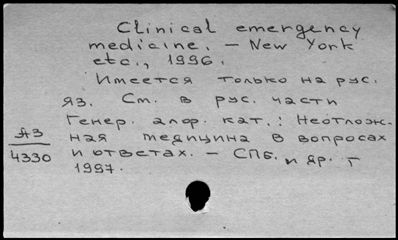 Clinical emergency
medicine. – New York
etc., 1996.
Имеется только на рус.
яз. См. в рус. части
Генер. алфр. кат.: Неотлож-
ная медицина в вопросах
и ответах. – СПб. и др.
1997.
АЗ
4330